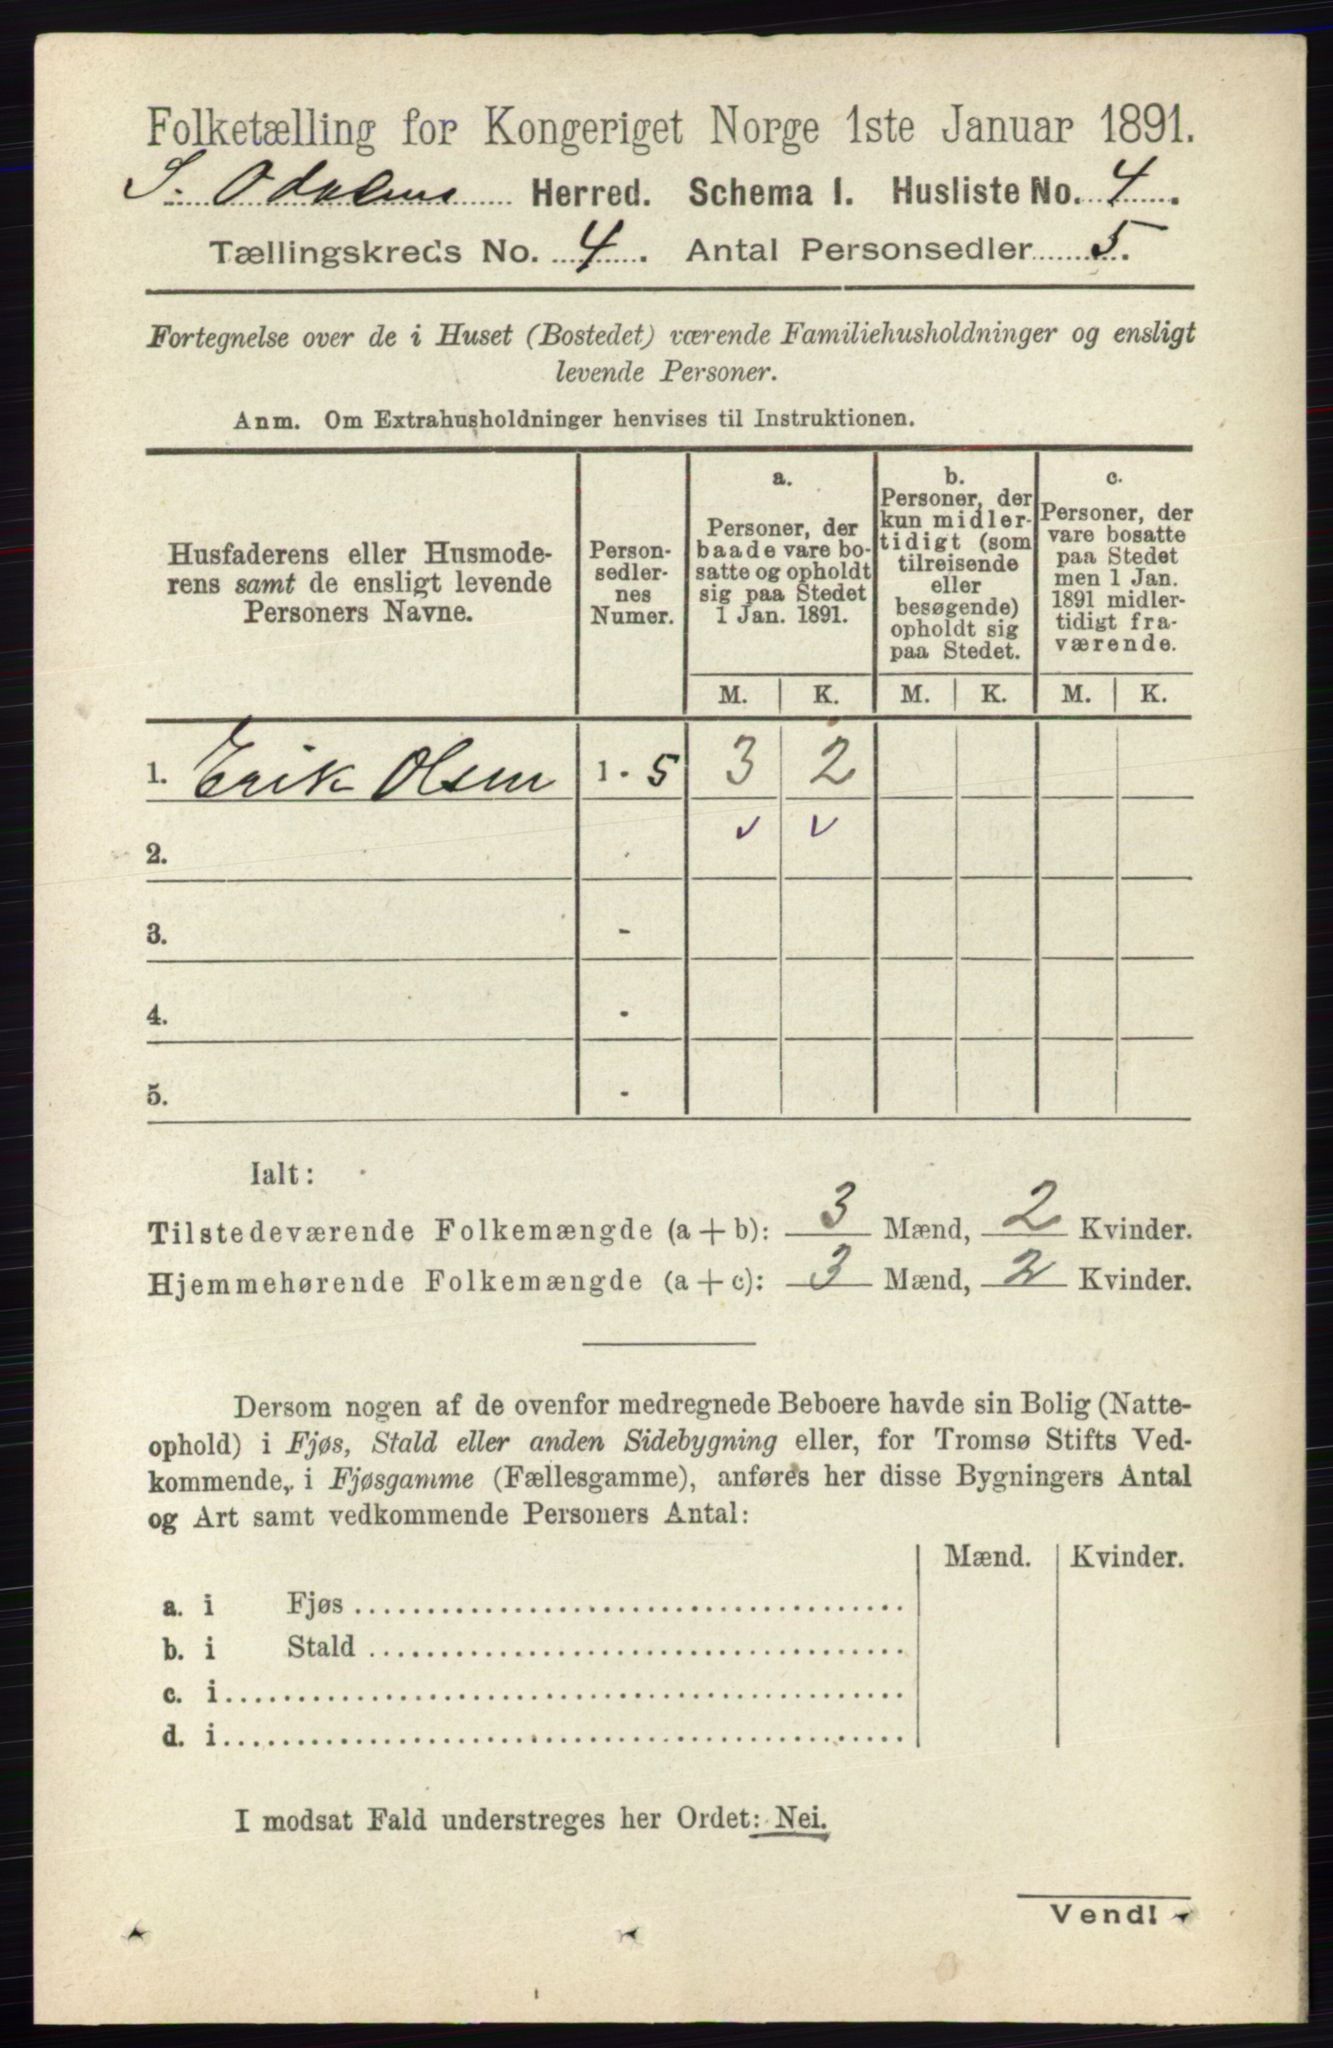 Folketælling for Kongeriget Norge 1ste Januar 1891.
S. Odalens Herred. Schema I. Husliste No. 4.
Tællingskreds No. 4. Antal Personsedler 5.
Fortegnelse over de i Huset (Bostedet) værende Familiehusholdninger og ensligt
levende Personer.
Anm. Om Extrahusholdninger henvises til Instruktionen.
Husfaderens eller Husmode-
rens samt de ensligt levende
Personers Navne.
Person-
sedler-
nes
Numer.
a.
Personer, der
baade vare bo-
satte og opholdt
sig paa Stedet
1 Jan. 1891.
b.
Personer, der
kun midler-
tidigt (som
tilreisende
eller
besøgende)
opholdt sig
paa Stedet.
c.
Personer, der
vare bosatte
paa Stedet
men 1 Jan.
1891 midler-
tidigt fra-
værende.
M. K. M. K. M. K.
1. Erik Olsen 1 - 5 3 2
2.
3. -
4. -
5. -
Ialt:
Tilstedeværende Folkemængde (a + b): 3 Mænd, 2 Kvinder.
Hjemmehørende Folkemængde (a + c): 3 Mænd, 2 Kvinder.
Dersom nogen af de ovenfor medregnede Beboere havde sin Bolig (Natte-
ophold) i Fjøs, Stald eller anden Sidebygning eller, for Tromsø Stifts Ved-
kommende, i Fjøsgamme (Fællesgamme), anføres her disse Bygningers Antal
og Art samt vedkommende Personers Antal:
Mænd. Kvinder.
a. i Fjøs
b. i Stald
c. i
d. i
I modsat Fald understreges her Ordet: Nei.
Vend!